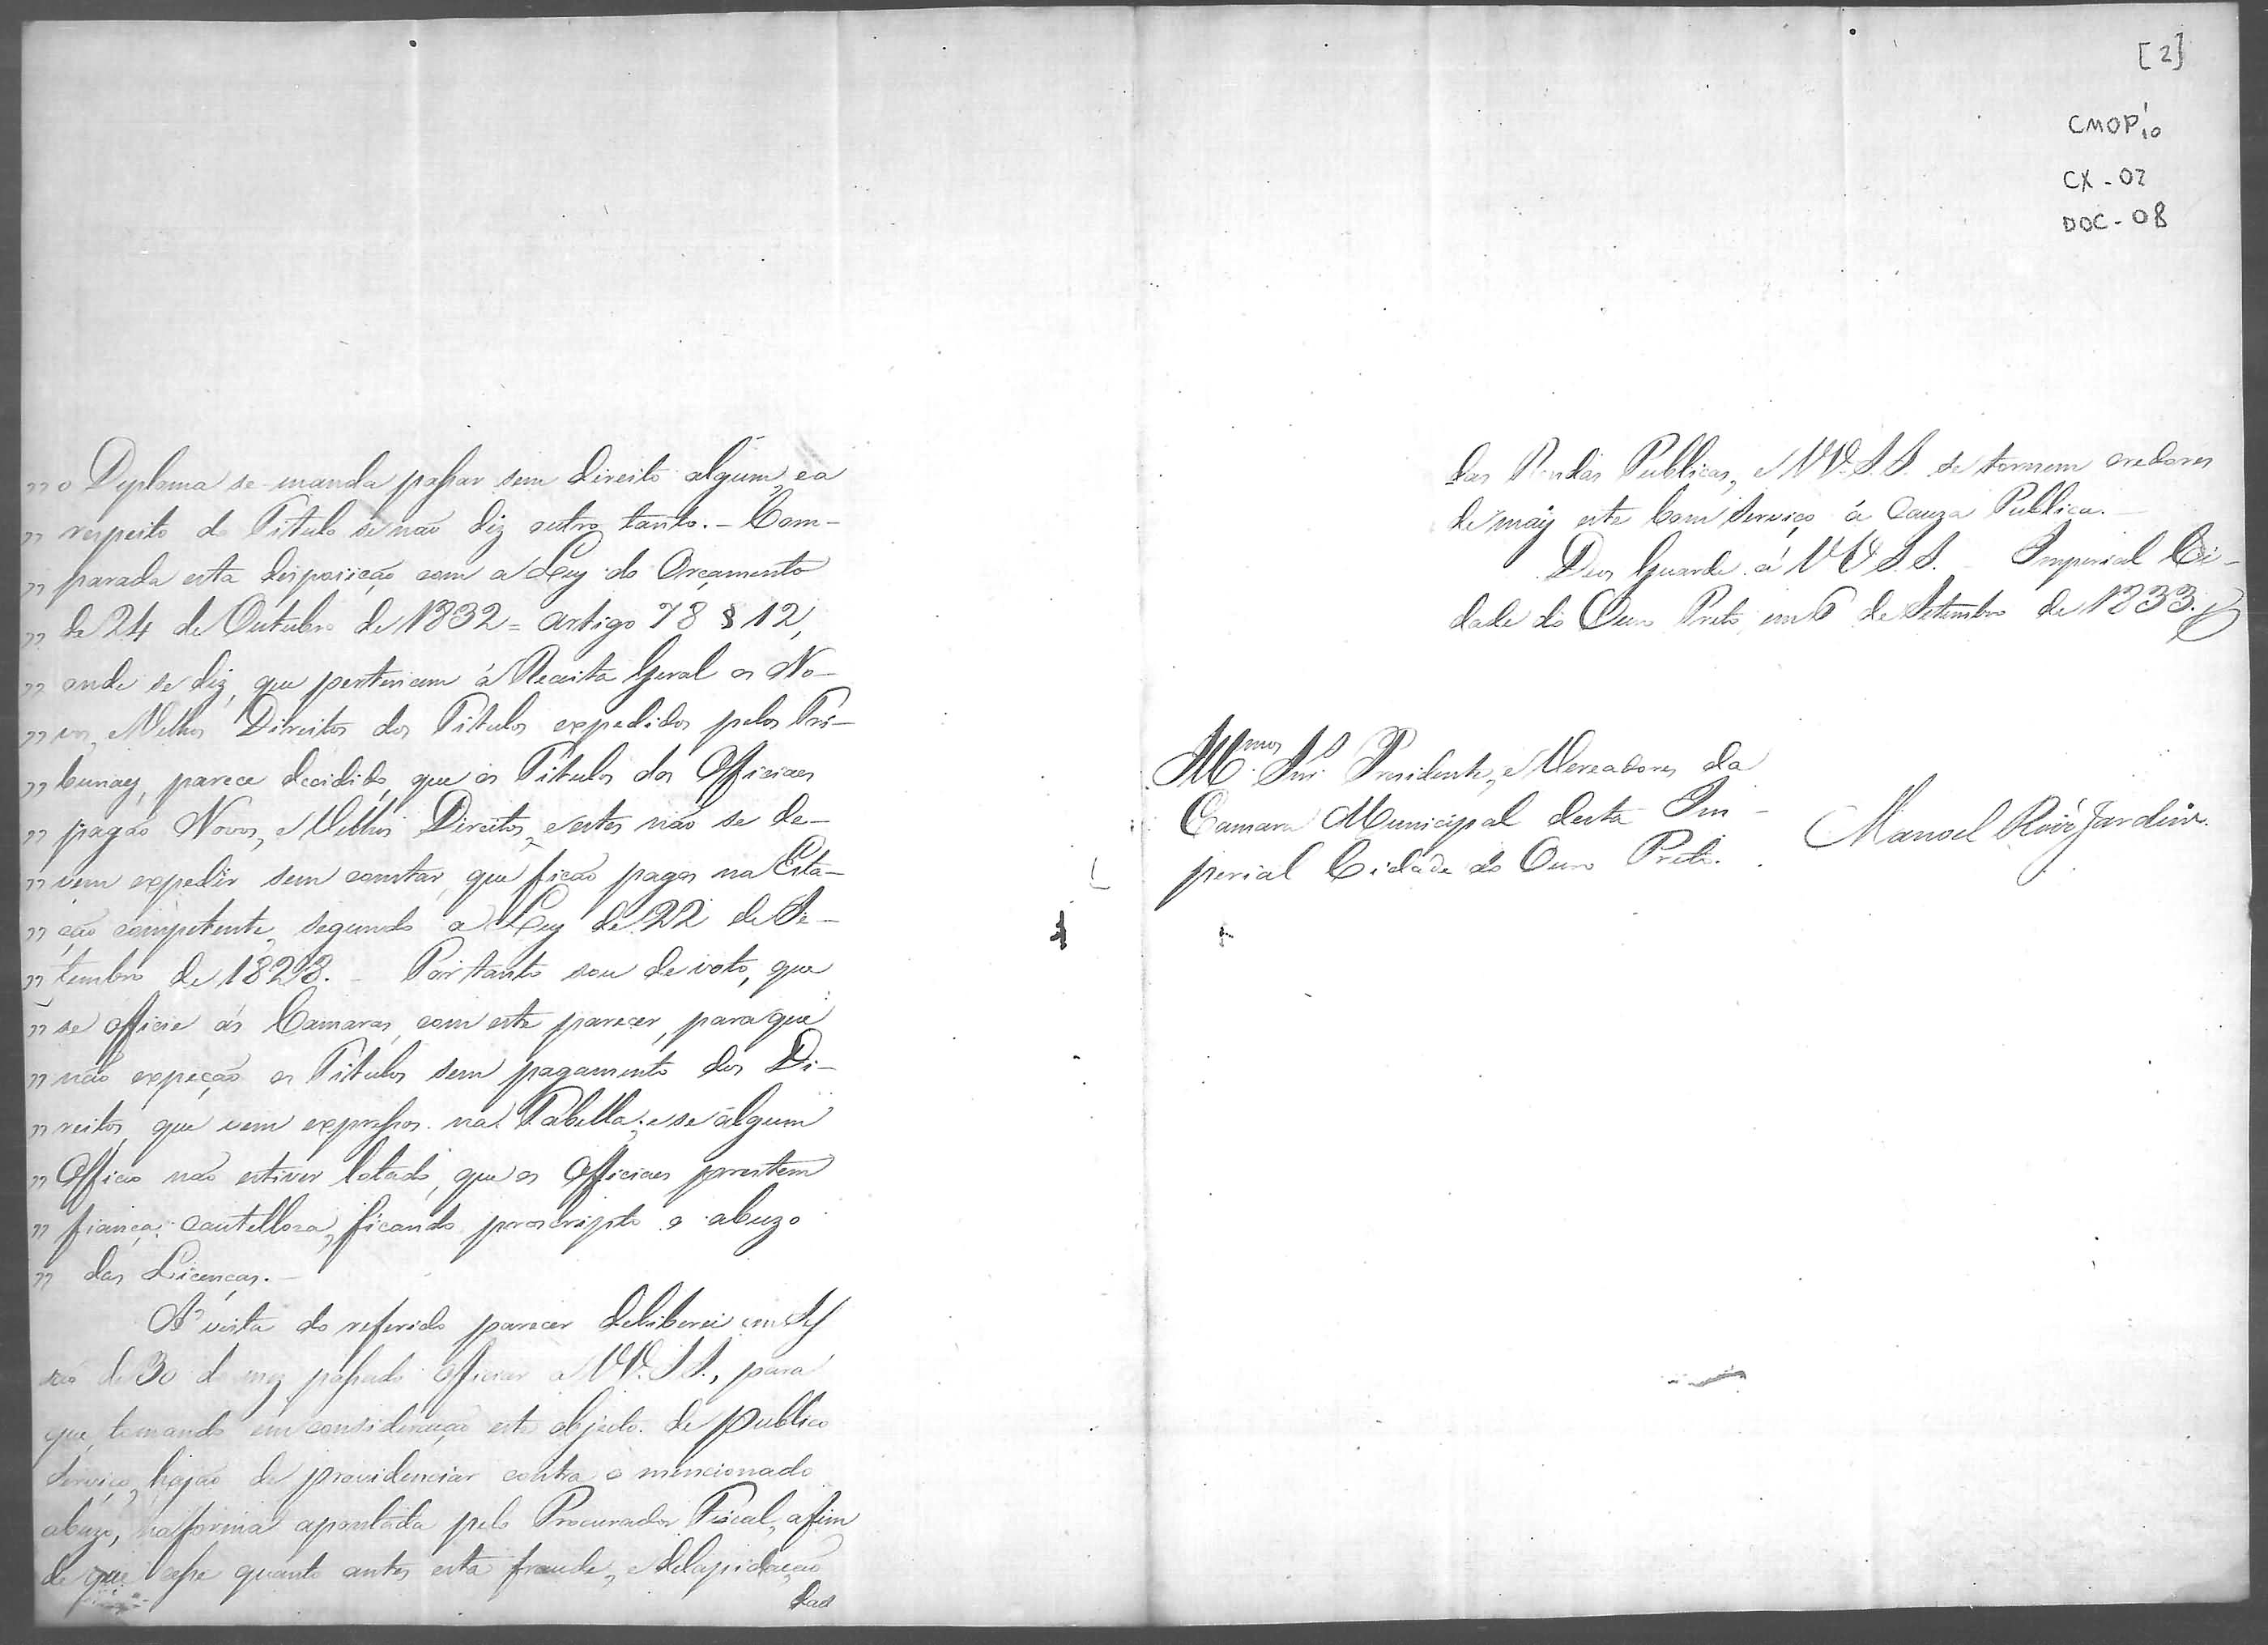 " o Diploma se manda passar sem direito algum, e a
" respeito do Titulo se não diz outro tanto. - Com-
" parada esta disposição com a Ley do Orçamento
" de 24 de Outubro de 1832 = artigo 78 § 12,
" onde se diz, que pertencem á Receita Geral os No-
" vos, e Velhos Direitos dos Titulos expedidos pelos Tri-
" bunaes, parece decidido, que os Titulos dos Officiaes
" pagão Novos, e Velhos Direitos, e estes não se de-
" vem expedir sem constar, que ficão pagos na Esta-
" ção competente, segundo a Ley de 22 de Se-
" tembro de 1828. - Portanto sou de voto, que
" se officie ás Camaras, com este parecer, para que
" não expeção os Titulos sem pagamento dos Di-
" reitos, que vem expressos na Tabella; e se algum
" Officio não estiver lotado, que os Officiaes prestem
" fiança cautelloza, ficando proscripto o abuzo
" das Licenças. -
A' vista do referido parecer deliberei em Ses
são de 30 do mez passado officiar a VV. SS., para
que, tomando em consideração este objecto de publico
Serviço, hajão de providenciar contra o mencionado
abuzo, na forma apontada pelo Procurador Fiscal, afim
de que cesse quanto antes esta fraude, e delapidação
das
[2]
CMOP
CX - 02
DOC - 08
das Rendas Publicas, e VV. SS. se tornem credores
de mais este bom Serviço á Cauza Publica. -
Deos Guarde á VV SS. Imperial Ci-
dade do Ouro Preto em 6 de Setembro de 1833.
Snr. Presidente, e Vereadores da
Camara Municipal desta Im-
perial Cidade do Ouro Preto.
Manoel Jardim